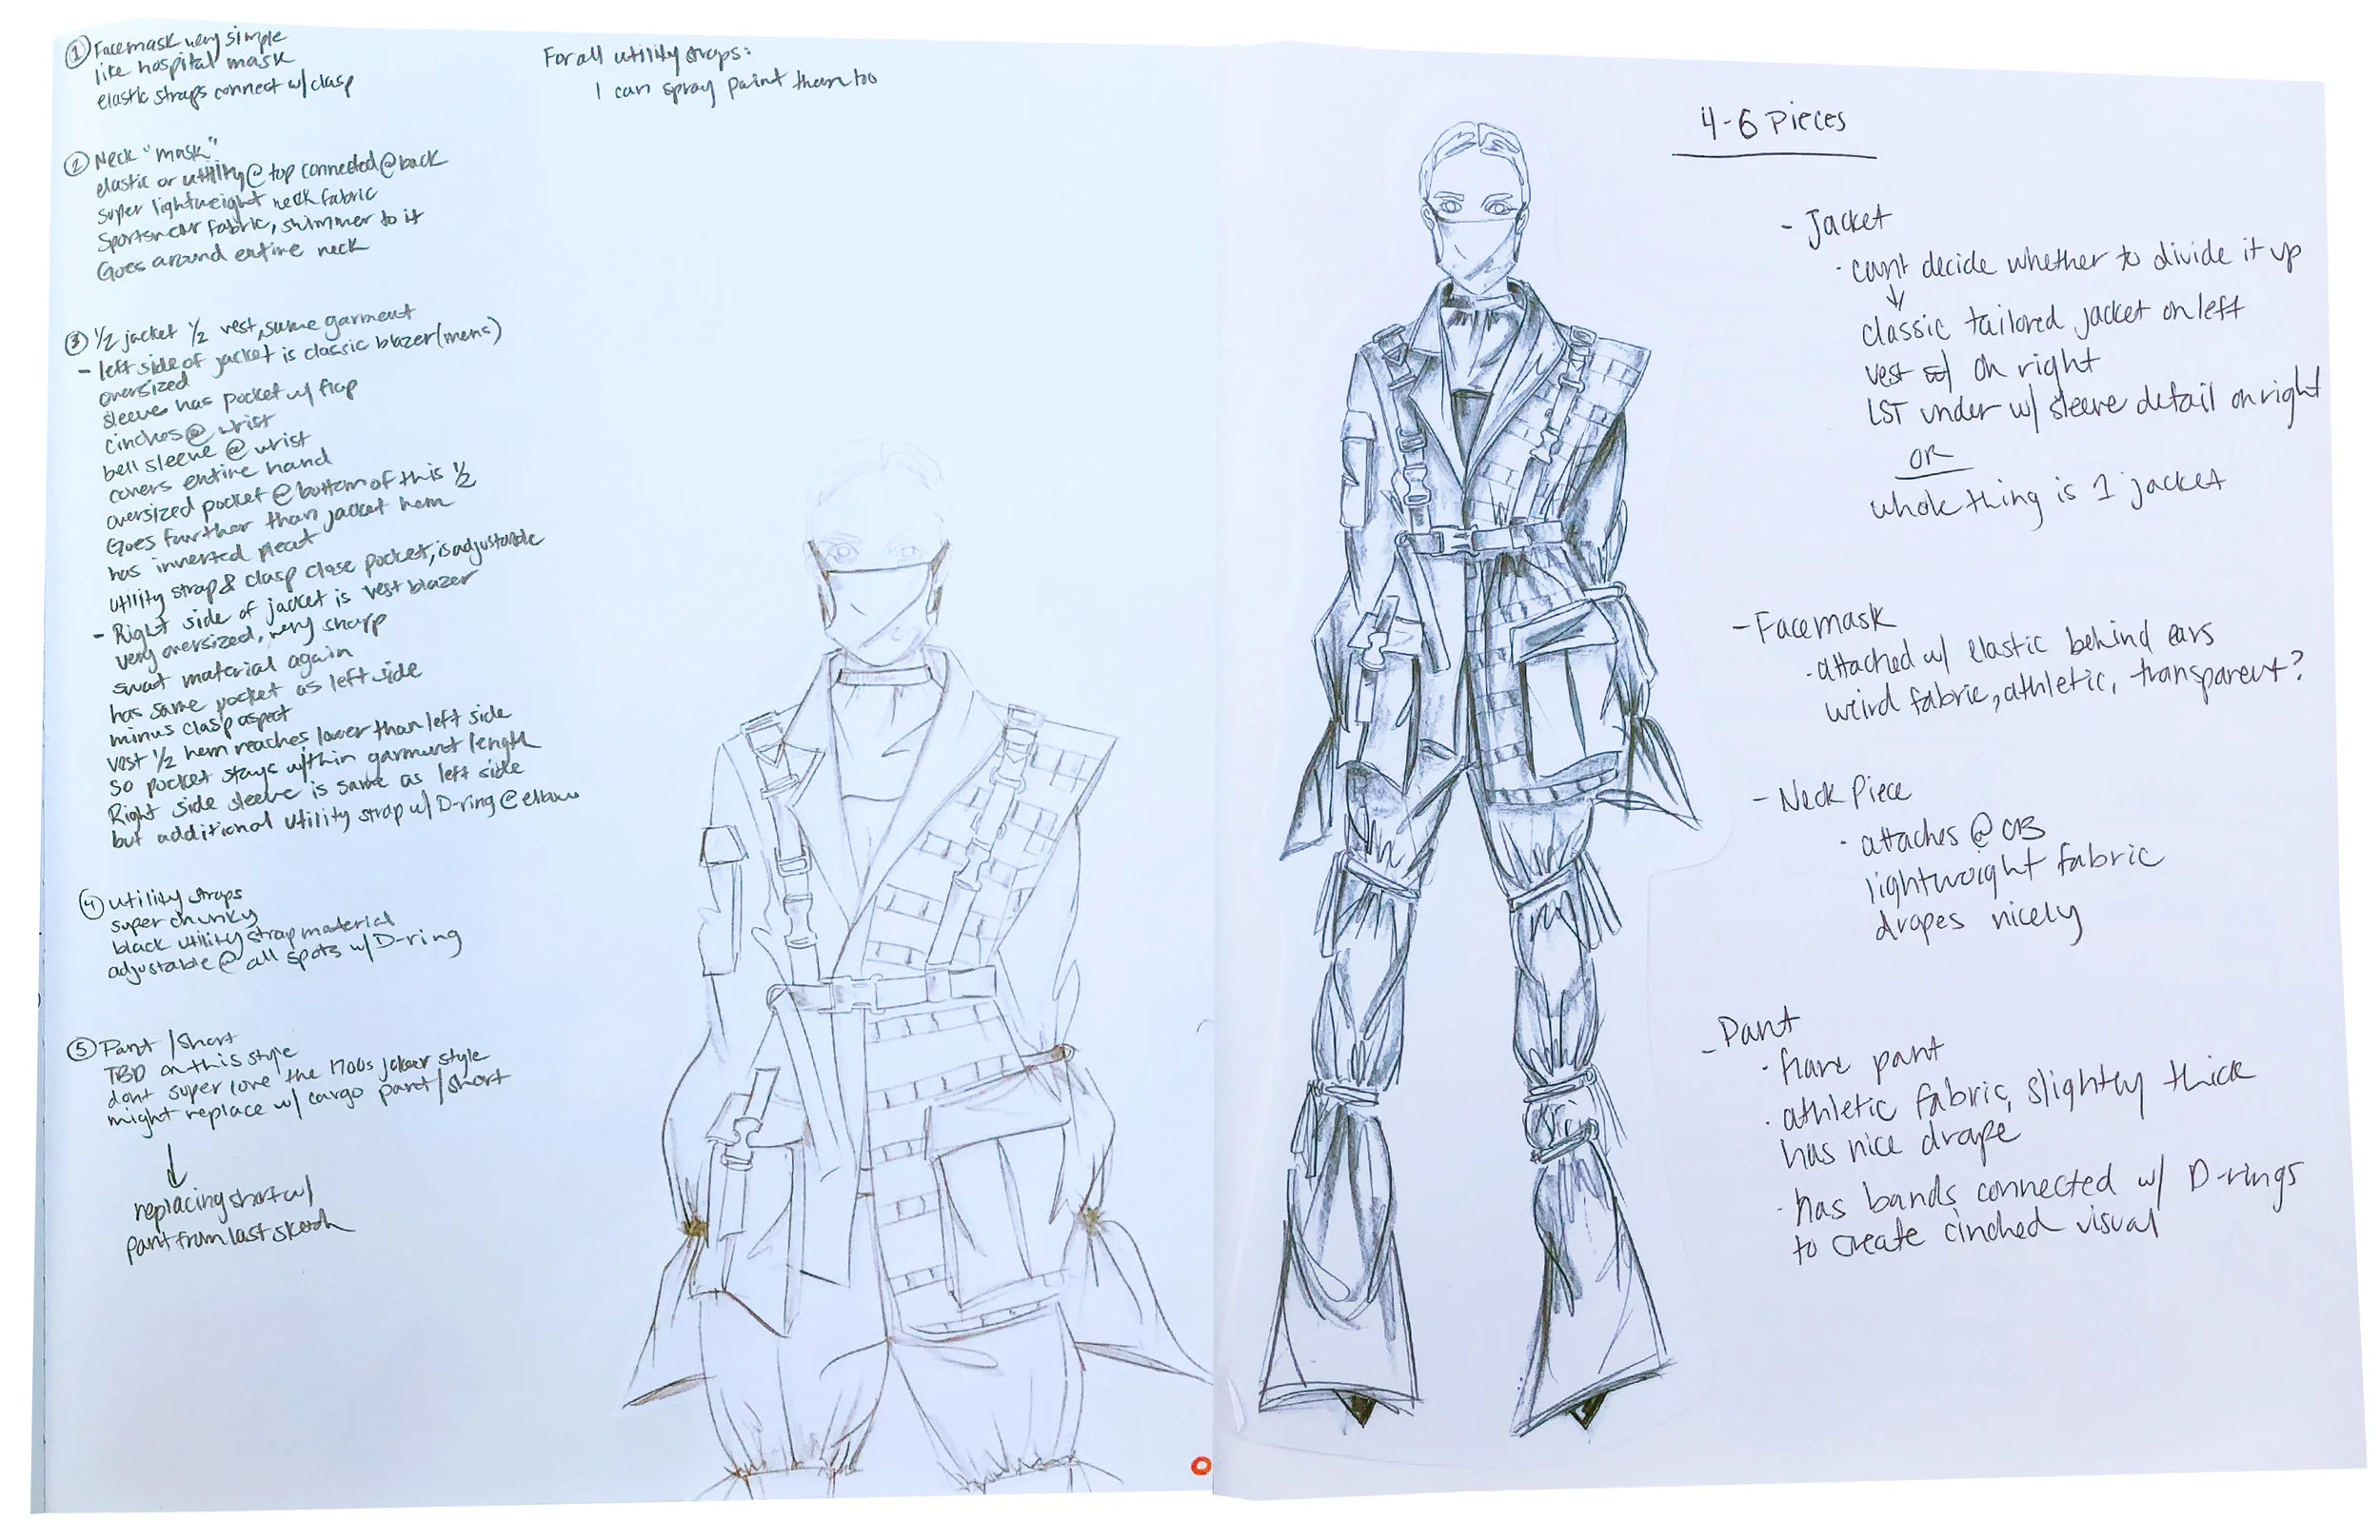 ① Facemask very simple
like hospital mask
elastic straps connect w/clasp
② Neck "mask"
elastic or utility @ top connected @ back
super lightweight neck fabric
Sportswear fabric, shimmer to it
Goes around entire neck
③ 1/2 jacket 1/2 vest, same garment
- left side of jacket is classic blazer (mens)
oversized
sleeve has pocket w/ flap
cinches @ wrist
bell sleeve @ wrist
covers entire hand
oversized pocket @ bottom of this 1/2
Goes further than jacket hem
has inverted pleat
utility strap & clasp close pocket, is adjustable
- Right side of jacket is vest blazer
very oversized, very sharp
swat material again
has same pocket as left side
minus clasp aspect
vest 1/2 hem reaches lower than left side
so pocket stays w/thin garment length
Right side sleeve is same as left side
but additional utility strap w/ D-ring @ elbow
④ utility straps
super chunky
black utility strap material
adjustable @ all spots w/ D-ring
⑤ Pant / Short
TBD on this style
dont super love the 1700s joker style
might replace w/ cargo pant/short
↓
replacing short w/
pant from last sketch
For all utility straps:
I can spray paint them too
4-6 pieces
- Jacket
· cant decide whether to divide it up
↓
classic tailored jacket on left
vest on right
LST under w/ sleeve detail on right
OR
whole thing is 1 jacket
- Facemask
· attached w/ elastic behind ears
weird fabric, athletic, transparent?
- Neck Piece
· attaches @ CB
lightweight fabric
drapes nicely
- Pant
· flare pant
· athletic fabric, slightly thick
has nice drape
· has bands connected w/ D-rings
to create cinched visual